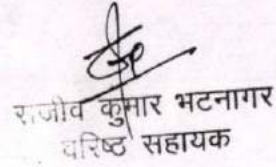 राजीव कुमार भटनागर
वरिष्ठ सहायक